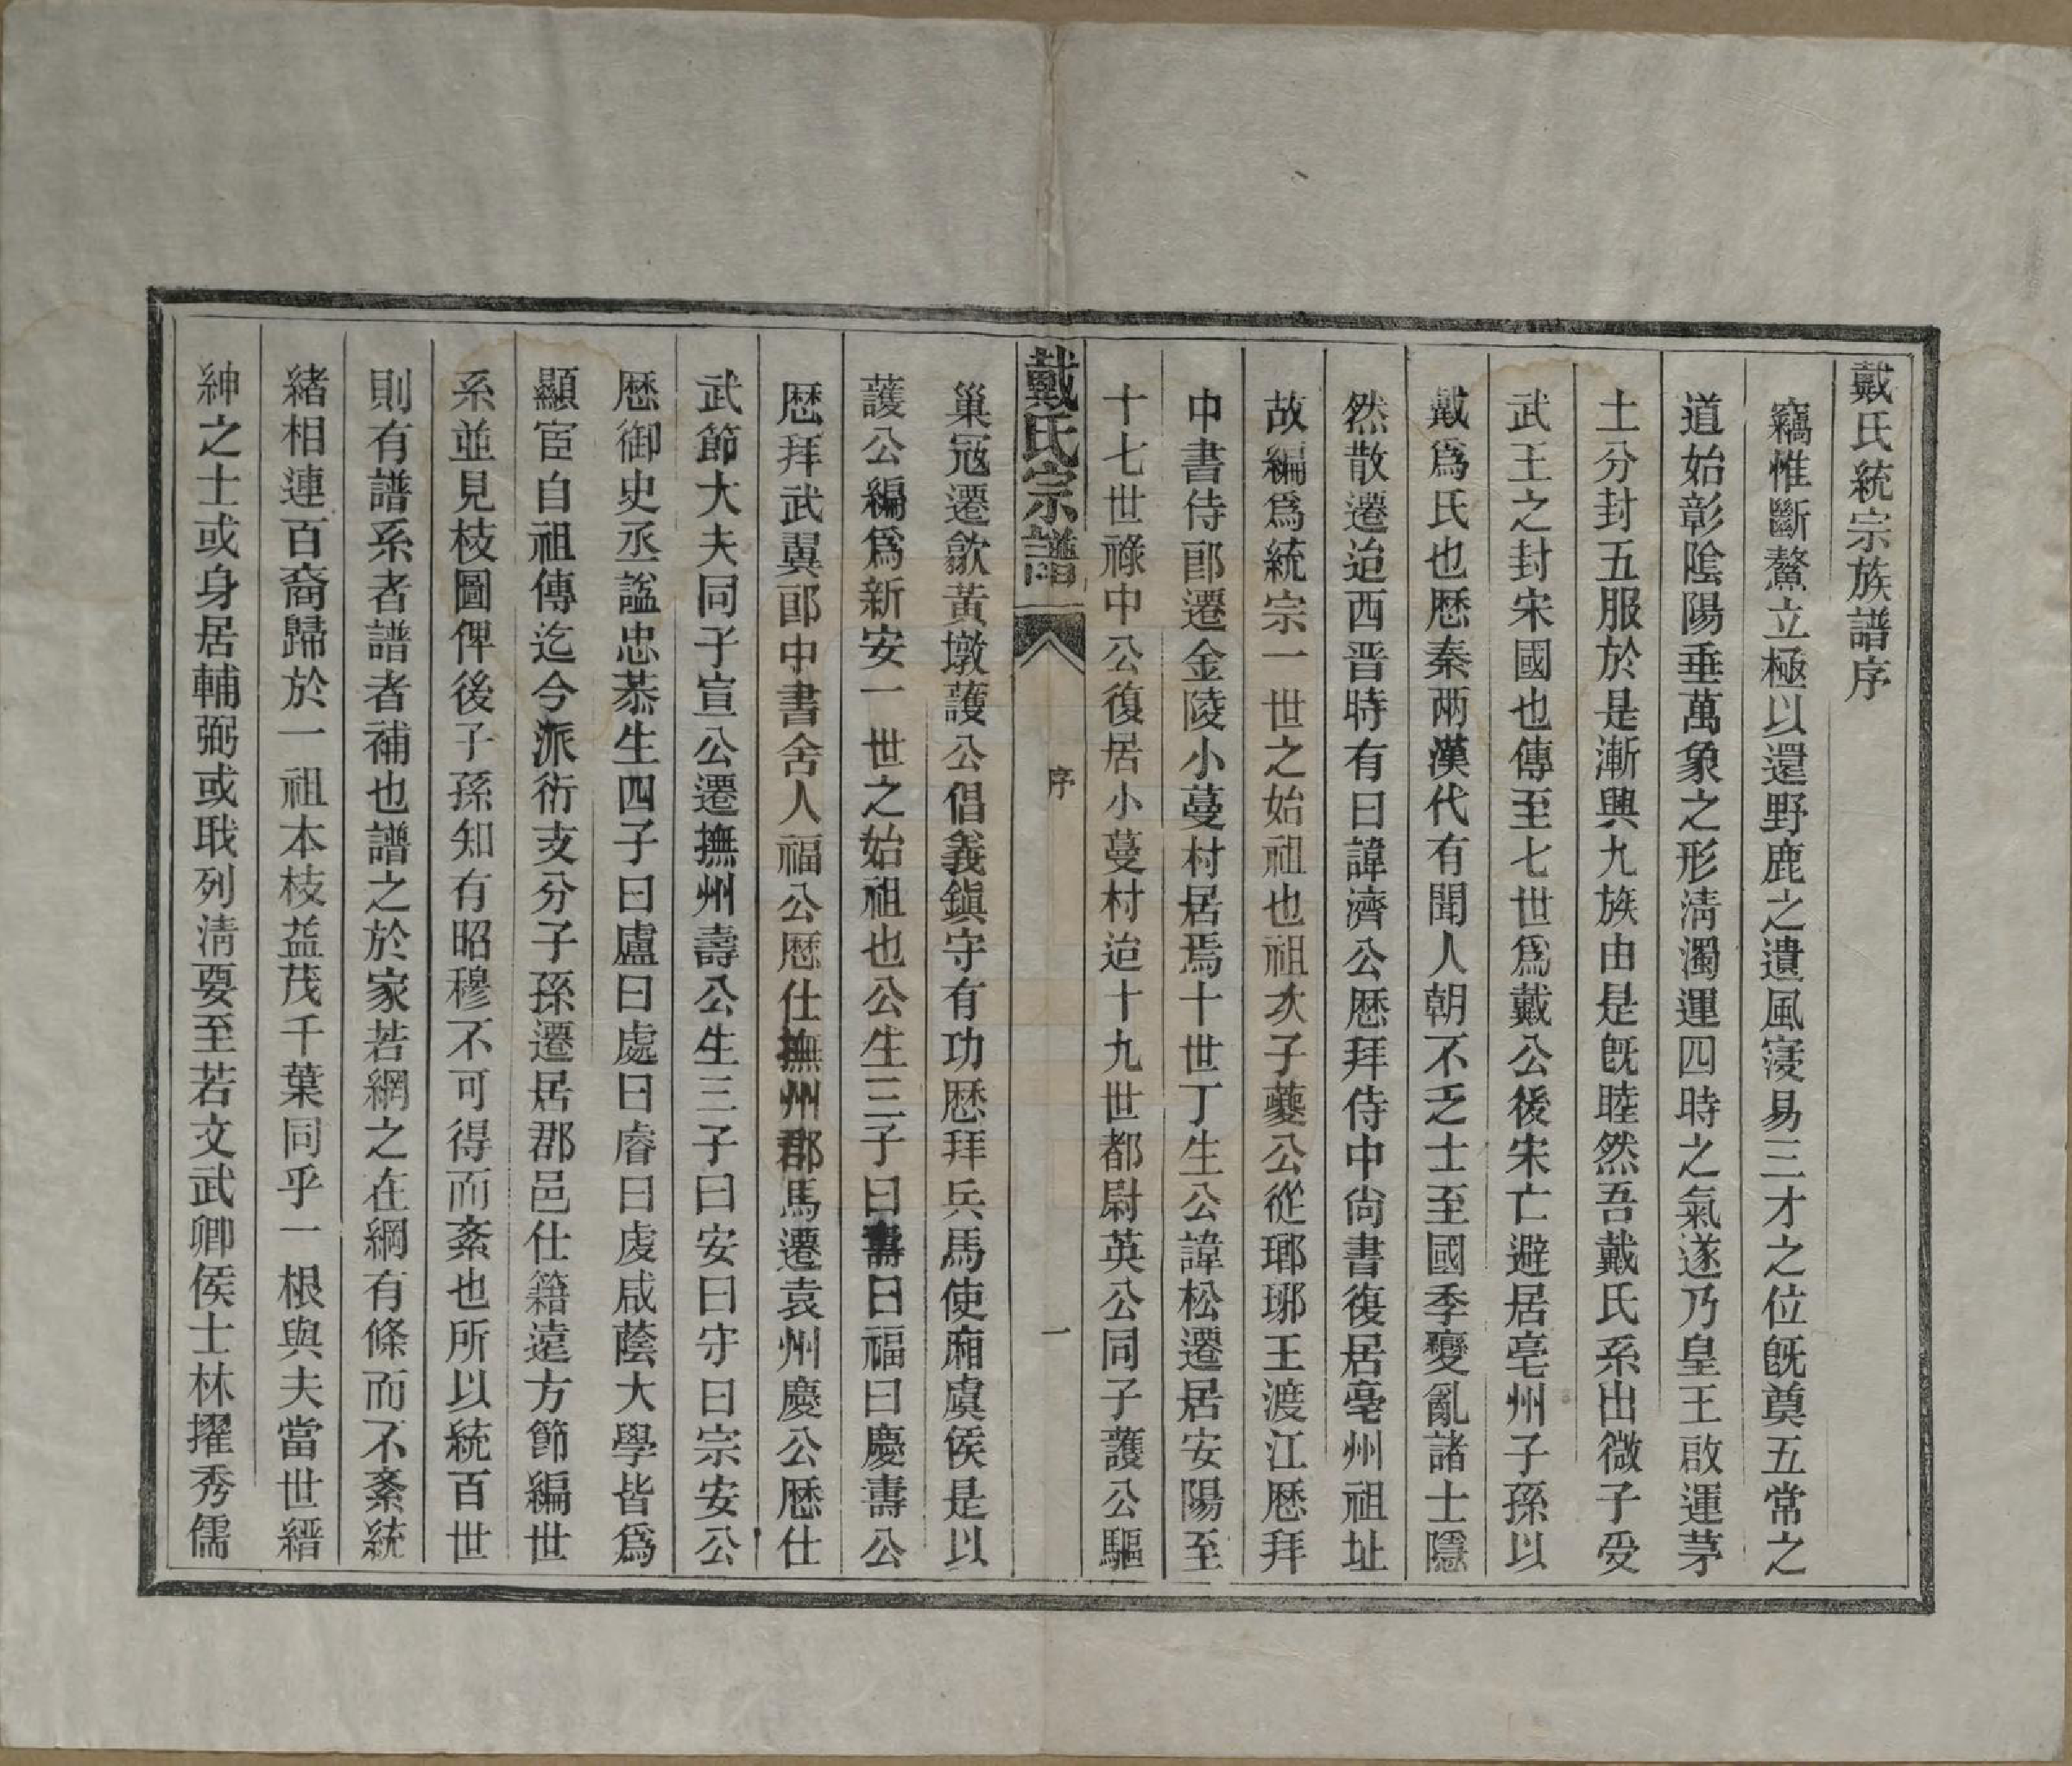 戴氏統宗族譜序
竊惟斷鰲立極以還野鹿之遺風寖易三才之位旣奠五常之
道始彰陰陽垂萬象之形淸濁運四時之氣遂乃皇王啟運茅
土分封五服於是漸興九族由是旣睦然吾戴氏系出微子受
武王之封宋國也傳至七世爲戴公後宋亡避居亳州子孫以
戴爲氏也歷秦兩漢代有聞人朝不乏士至國季變亂諸士隱
然散遷迨西晋時有曰諱濟公歷拜侍中尙書復居亳州祖址
故編爲統宗一世之始祖也祖次子夔公從瑯琊王渡江歷拜
中書侍郎遷金陵小蔓村居焉十世丁生公諱松遷居安陽至
十七世祿中公復居小蔓村迨十九世都尉英公同子護公驅
戴氏宗譜
序
一
巢寇遷歙黃墩護公倡義鎭守有功歷拜兵馬使廂虞侯是以
護公編爲新安一世之始祖也公生三子曰壽曰福曰慶壽公
歷拜武翼郎中書舍人福公歷仕撫州郡馬遷袁州慶公歷仕
武節大夫同子宣公遷撫州壽公生三子曰安曰守曰宗安公
歷御史丞諡忠恭生四子曰盧曰處曰睿曰虔咸蔭大學皆爲
顯宦自祖傳迄今派衍支分子孫遷居郡邑仕籍遠方節編世
系並見枝圖俾後子孫知有昭穆不可得而紊也所以統百世
則有譜系者譜者補也譜之於家若網之在綱有條而不紊統
緖相連百裔歸於一祖本枝益茂千葉同乎一根與夫當世縉
紳之士或身居輔弼或戢列淸要至若文武卿侯士林擢秀儒